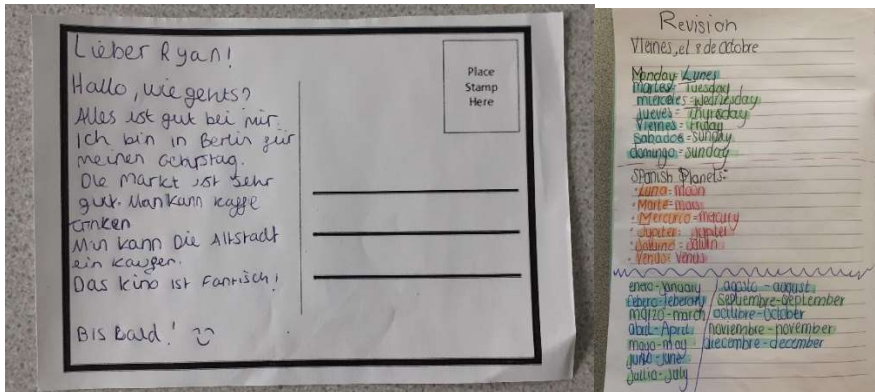 Lieber Ryan!
Hallo, wie gehts?
Alles ist gut bei mir.
Ich bin in Berlin für
meinen
Die Markt ist sehr
gut. Man kann kaffe
trinken
Man kann Die Altstadt
ein kaufen.
Das Kino ist Fantisch!
BIS Bald!
Place
Stamp
Here
Revision
Viernes, el 8 de Octobre
Monday= Lunes
martes= Tuesday
miercoles= Wednesday
Jueves= Thursday
Viernes= Friday
Sabados=Sunday
domingo=Sunday
Spanish Planets:
·Luna=moon
·Marte=mars
·Mercurio=mercury
·Jupiter=
·Venus=Venus
enero-January
febero-feberary
marzo-march
abril-April
mayo-may
junio-june
jullio-july
agosto-august
Septiembre-September
octubre-October
noviembre-november
diecembre-december